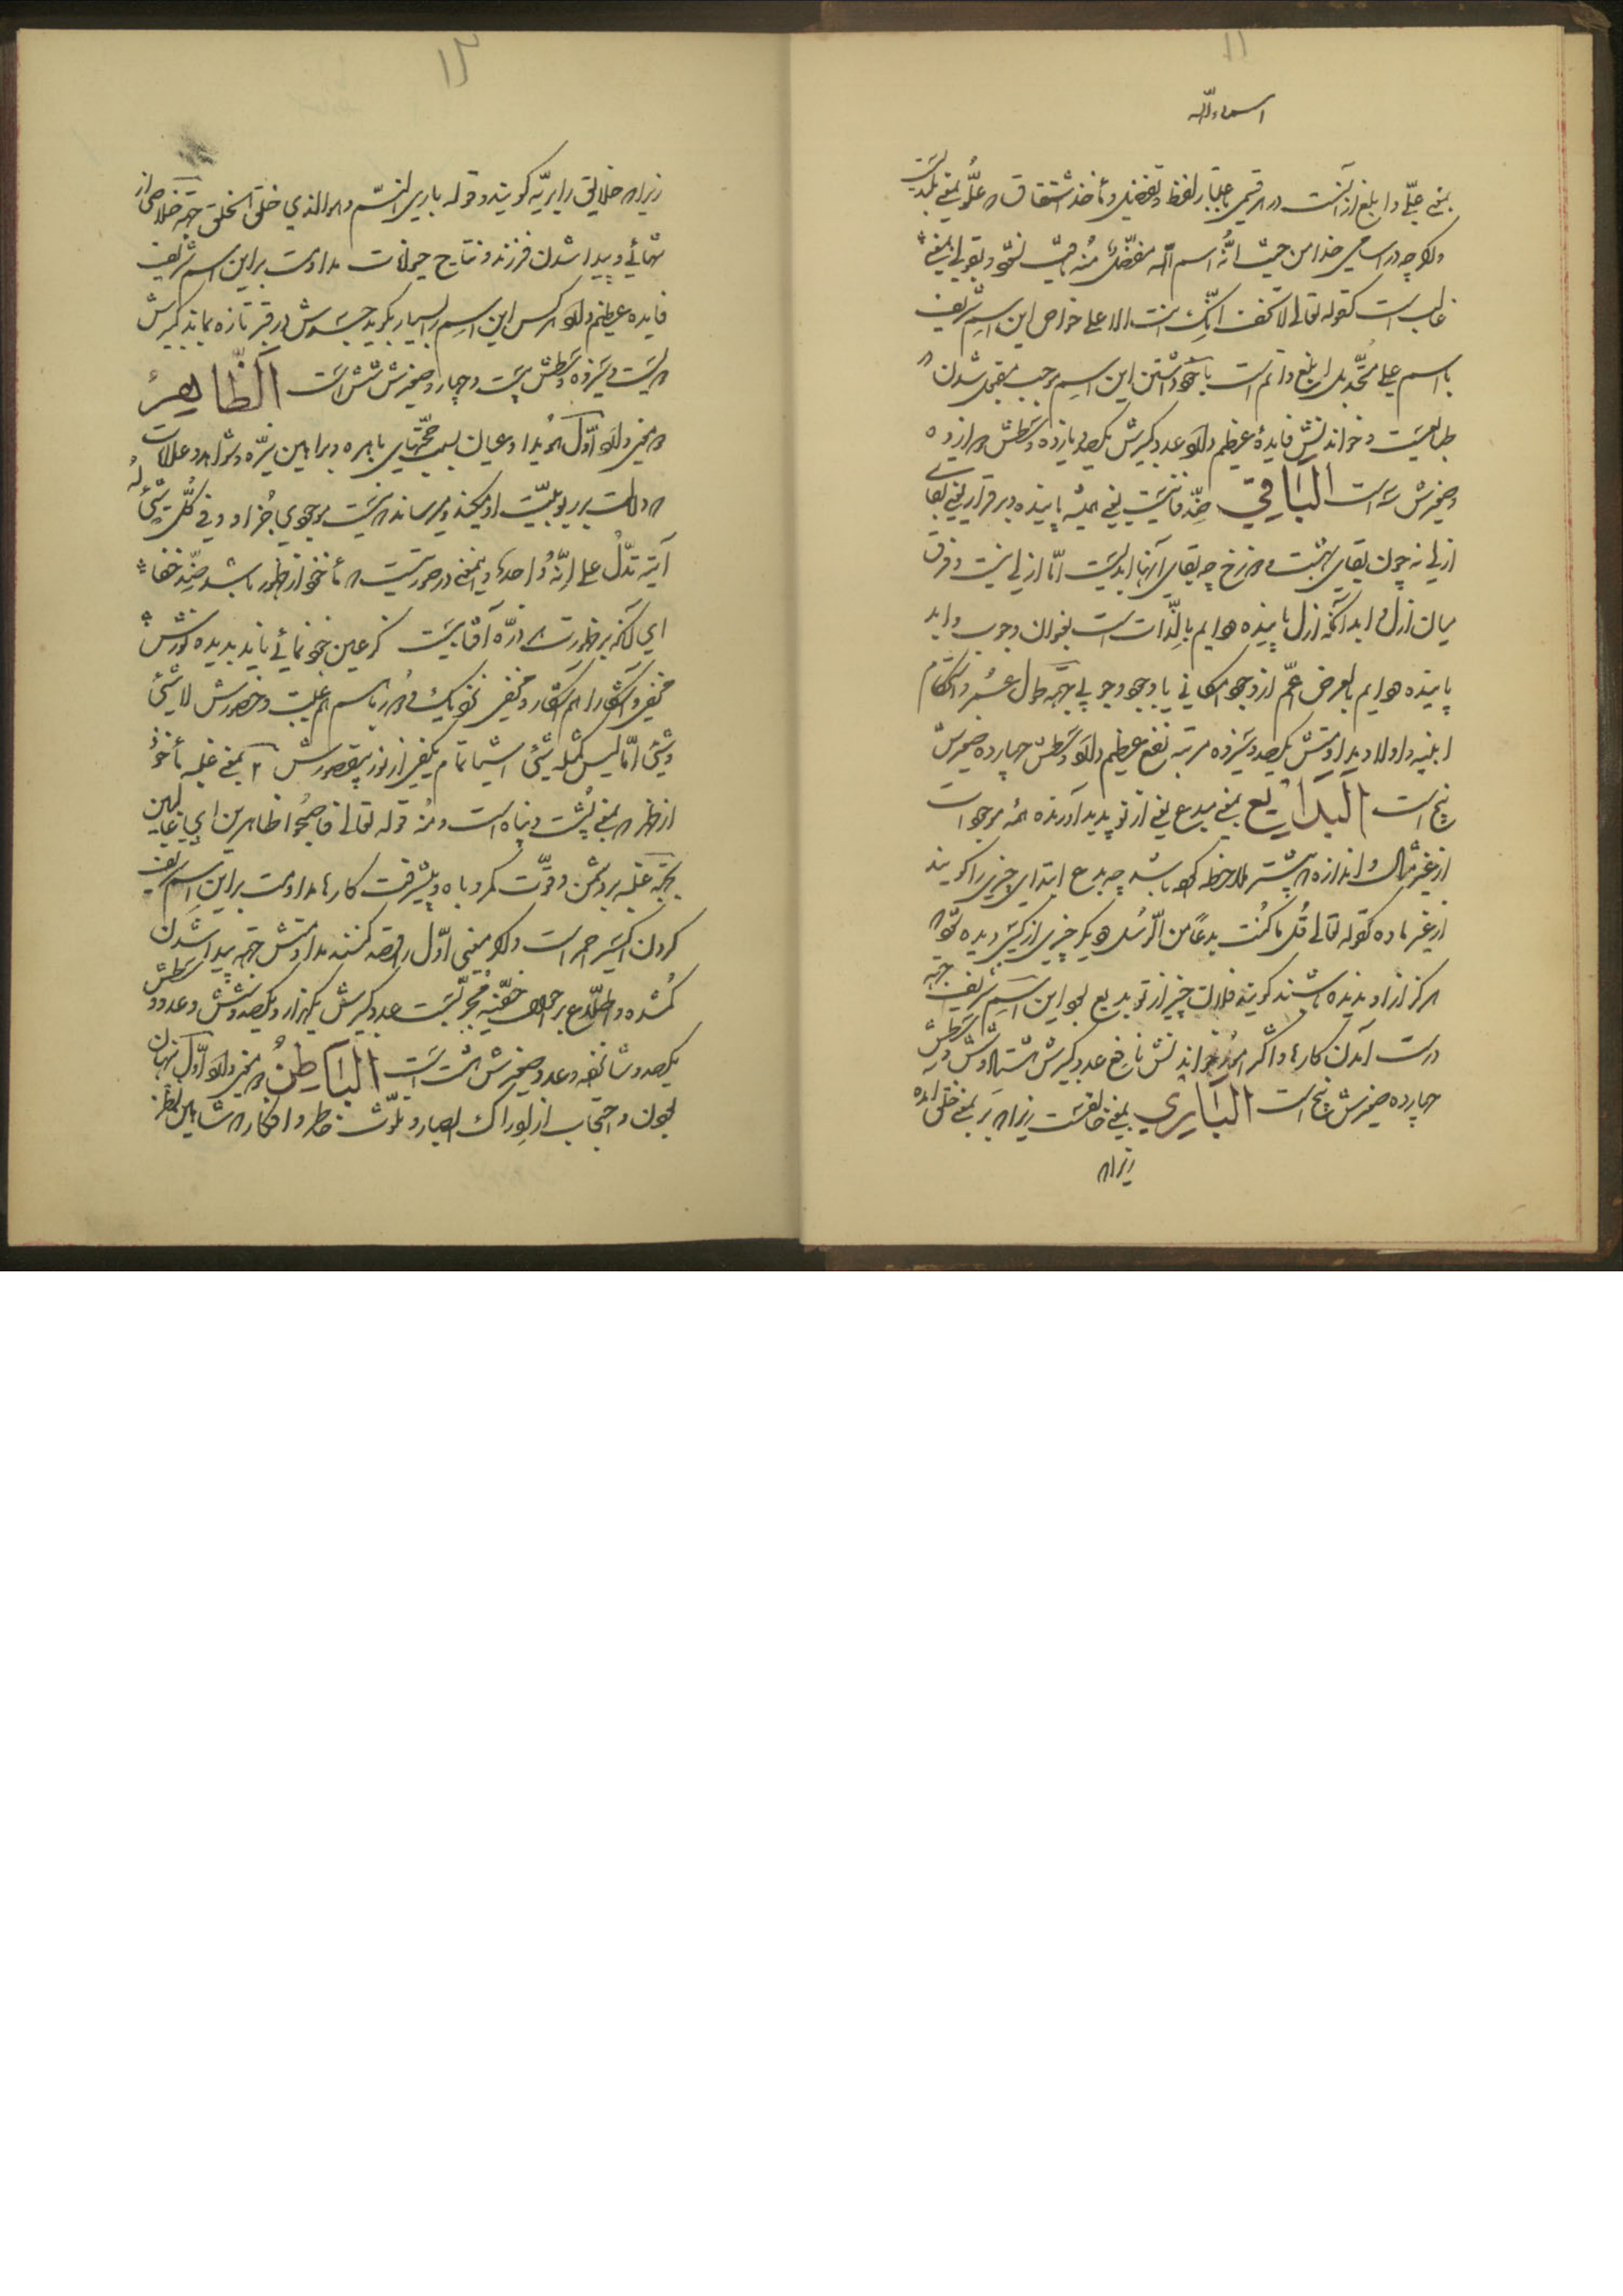 ۱۱
اسماء اللّه
بمعنی علیّ و ابلغ از آنست در ترقی باعتبار لفظ تفضیل و مأخذ اشتقاق
و اگرچه در اسامی خدا من حیث انّه اسم اللّه مفضّل منه
غالب است کقوله تعالی لا تخف انّک انت الاعلی خواص این اسم شریف
با اسم علی متّحد بل ابلغ و اتم است با خود داشتن این اسم موجب مقبول شدن
طبایعست و خواندنش فایدهٔ عظیم دارد عدد کبیرش یکصد یازده وسطش دوازده
و صغیرش سه است اَلبَاقِي ضدّ فانیست یعنی همیشه پاینده و برقرار یعنی بقای
ازلی نه چون بقای بهشت و دوزخ چه بقای آنها ابدیست امّا ازلی نیست و فرق
میان ازل و ابد آنکه ازل پاینده دایم بالذّات است بعنوان وجوب و ابد
پاینده دایم بالعرض اعمّ از وجود امکانی یا وجود وجوبی جهة طول عمر و استحکام
ابنیه و اولاد مداومتش یکصد و سیزده مرتبه نفع عظیم دارد وسطش چهارده صغیرش
پنج است اَلبَدِیع بمعنی مبدع یعنی از نو پدید آورنده همه موجودات
از غیر مثال و اندازه که پیشتر ملاحظه کرده باشد چه بدع ابتدای چیزی را گویند
از غیر ماده کقوله تعالی قُل ما کُنت بدعًا من الرّسُل دیگر چیزی از کسی دیده شود که
هرگز از او ندیده باشند گویند فلان چیز از تو بدیع بود این اسم شریف جهة
درست آمدن کارها و اکثر امور خواندنش نافع عدد کبیرش هشتاد و شش وسطش
چهارده صغیرش پنج است اَلبَارِي بمعنی خالقست زیرا که بَرَ بمعنی خلق آمده
زیرا که
۱۲
زیرا که خلایق را بریّه گویند و قوله باری النسم و هو الذي خلق الخلق جهة خلاصی از
تنهائی و پیدا شدن فرزند و نتایج حیوانات مداومت بر این اسم شریف
فایده عظیم دارد هر کس این اسم را بسیار بگوید جسدش در قبر تازه بماند کبیرش
دویست و سیزده وسطش بیست و چهار و صغیرش شش است اَلظَّاهِرُ
دو معنی دارد اوّل هویدا و عیان بسبب حجّتهای باهره و براهین نیّره و شواهد و علامات
که دلالت بر ربوبیّت او میکند و میرساند نیست موجودی جز او و في کُلّ شيءٍ لهُ
آیة تدُلّ علی انّهُ واحدٌ و این معنی در صورتیست که مأخوذ از ظهور باشد ضدّ خفا
ای آنکه بر ظهورت هر ذرّه آفتابیست کز عین خودنمائی ناید بدیده نورش
مخفی و آشکارا هم آشکار و مخفی نزدیک و دور با هم غیبت و حضورش لاشیء
و شیء امّا لیس کمثله شیء اشیا تمام یکسر از نور بیقصورش ۲ بمعنی غلبه مأخوذ
از ظهر که بمعنی پُشت و پناه است و منه قوله تعالی فاصبحوا ظاهرین ای غالبین
بجهة غلبه بر دشمن و قوّت کمر و باه و پیشرفت کارها مداومت بر این اسم شریف
کردن اکسیر احمر است و اگر معنی اوّل را قصد کنند مداومتش جهة پیدا شدن
گمشده و اطّلاع بر امور خفیّه مجرّبست عدد کبیرش یکهزار و یکصد و شش وسطش
یکصد و شانزده و عدد صغیرش هشت است اَلبَاطِنُ دو معنی دارد اوّل نهان
بودن و احتجاب از ادراک ابصار و تلوّث خاطر و افکار